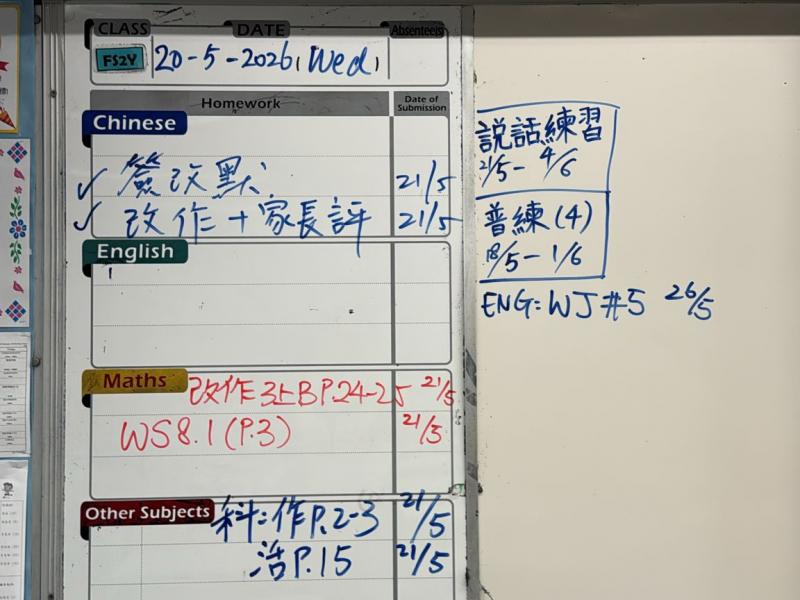 CLASS DATE Absentee/s
FS2Y 20-5-2026, Wed,
Homework Date of Submission
Chinese
✓ 簽改默 21/5
✓ 改作+家長評 21/5
English
Maths 改作3上B P.24-25 21/5
WS 8.1 (P.3) 21/5
Other Subjects 科:作P.2-3 21/5
活P.15 21/5
説話練習
21/5 - 4/6
普練(4)
18/5 - 1/6
ENG: WJ #5 26/5